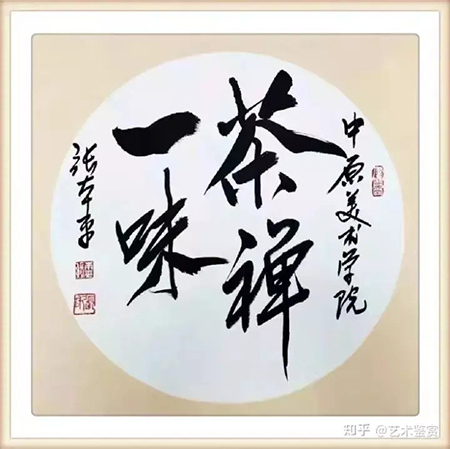 中原美术学院
茶禅
一味
张本平
知乎 @艺术鉴赏